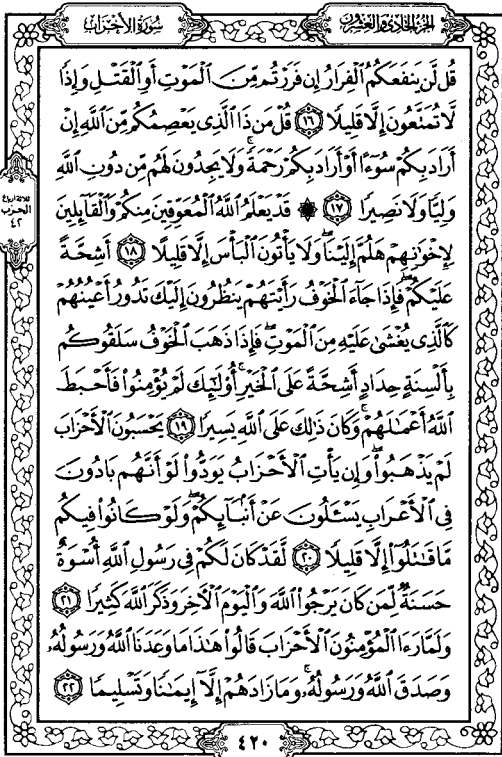 سُورَةُ الأَحْزَابِ
الجُزْءُ الحَادِي وَالعِشْرُونَ
قُل لَّن يَنفَعَكُمُ الْفِرَارُ إِن فَرَرْتُم مِّنَ الْمَوْتِ أَوِ الْقَتْلِ وَإِذًا
لَّا تُمَتَّعُونَ إِلَّا قَلِيلًا ١٦ قُلْ مَن ذَا الَّذِي يَعْصِمُكُم مِّنَ اللَّهِ إِنْ
أَرَادَ بِكُمْ سُوءًا أَوْ أَرَادَ بِكُمْ رَحْمَةً وَلَا يَجِدُونَ لَهُم مِّن دُونِ اللَّهِ
وَلِيًّا وَلَا نَصِيرًا ١٧ ۞ قَدْ يَعْلَمُ اللَّهُ الْمُعَوِّقِينَ مِنكُمْ وَالْقَائِلِينَ
لِإِخْوَانِهِمْ هَلُمَّ إِلَيْنَا وَلَا يَأْتُونَ الْبَأْسَ إِلَّا قَلِيلًا ١٨ أَشِحَّةً
عَلَيْكُمْ فَإِذَا جَاءَ الْخَوْفُ رَأَيْتَهُمْ يَنظُرُونَ إِلَيْكَ تَدُورُ أَعْيُنُهُمْ
كَالَّذِي يُغْشَىٰ عَلَيْهِ مِنَ الْمَوْتِ فَإِذَا ذَهَبَ الْخَوْفُ سَلَقُوكُم
بِأَلْسِنَةٍ حِدَادٍ أَشِحَّةً عَلَى الْخَيْرِ أُولَٰئِكَ لَمْ يُؤْمِنُوا فَأَحْبَطَ
اللَّهُ أَعْمَالَهُمْ وَكَانَ ذَٰلِكَ عَلَى اللَّهِ يَسِيرًا ١٩ يَحْسَبُونَ الْأَحْزَابَ
لَمْ يَذْهَبُوا وَإِن يَأْتِ الْأَحْزَابُ يَوَدُّوا لَوْ أَنَّهُم بَادُونَ
فِي الْأَعْرَابِ يَسْـَٔلُونَ عَنْ أَنبَائِكُمْ وَلَوْ كَانُوا فِيكُم
مَّا قَاتَلُوا إِلَّا قَلِيلًا ٢٠ لَّقَدْ كَانَ لَكُمْ فِي رَسُولِ اللَّهِ أُسْوَةٌ
حَسَنَةٌ لِّمَن كَانَ يَرْجُوا اللَّهَ وَالْيَوْمَ الْآخِرَ وَذَكَرَ اللَّهَ كَثِيرًا ٢١
وَلَمَّا رَءَا الْمُؤْمِنُونَ الْأَحْزَابَ قَالُوا هَٰذَا مَا وَعَدَنَا اللَّهُ وَرَسُولُهُۥ
وَصَدَقَ اللَّهُ وَرَسُولُهُۥ وَمَا زَادَهُمْ إِلَّا إِيمَانًا وَتَسْلِيمًا ٢٢
ثلاثة أرباع
الحزب
٤٢
٤٢٠